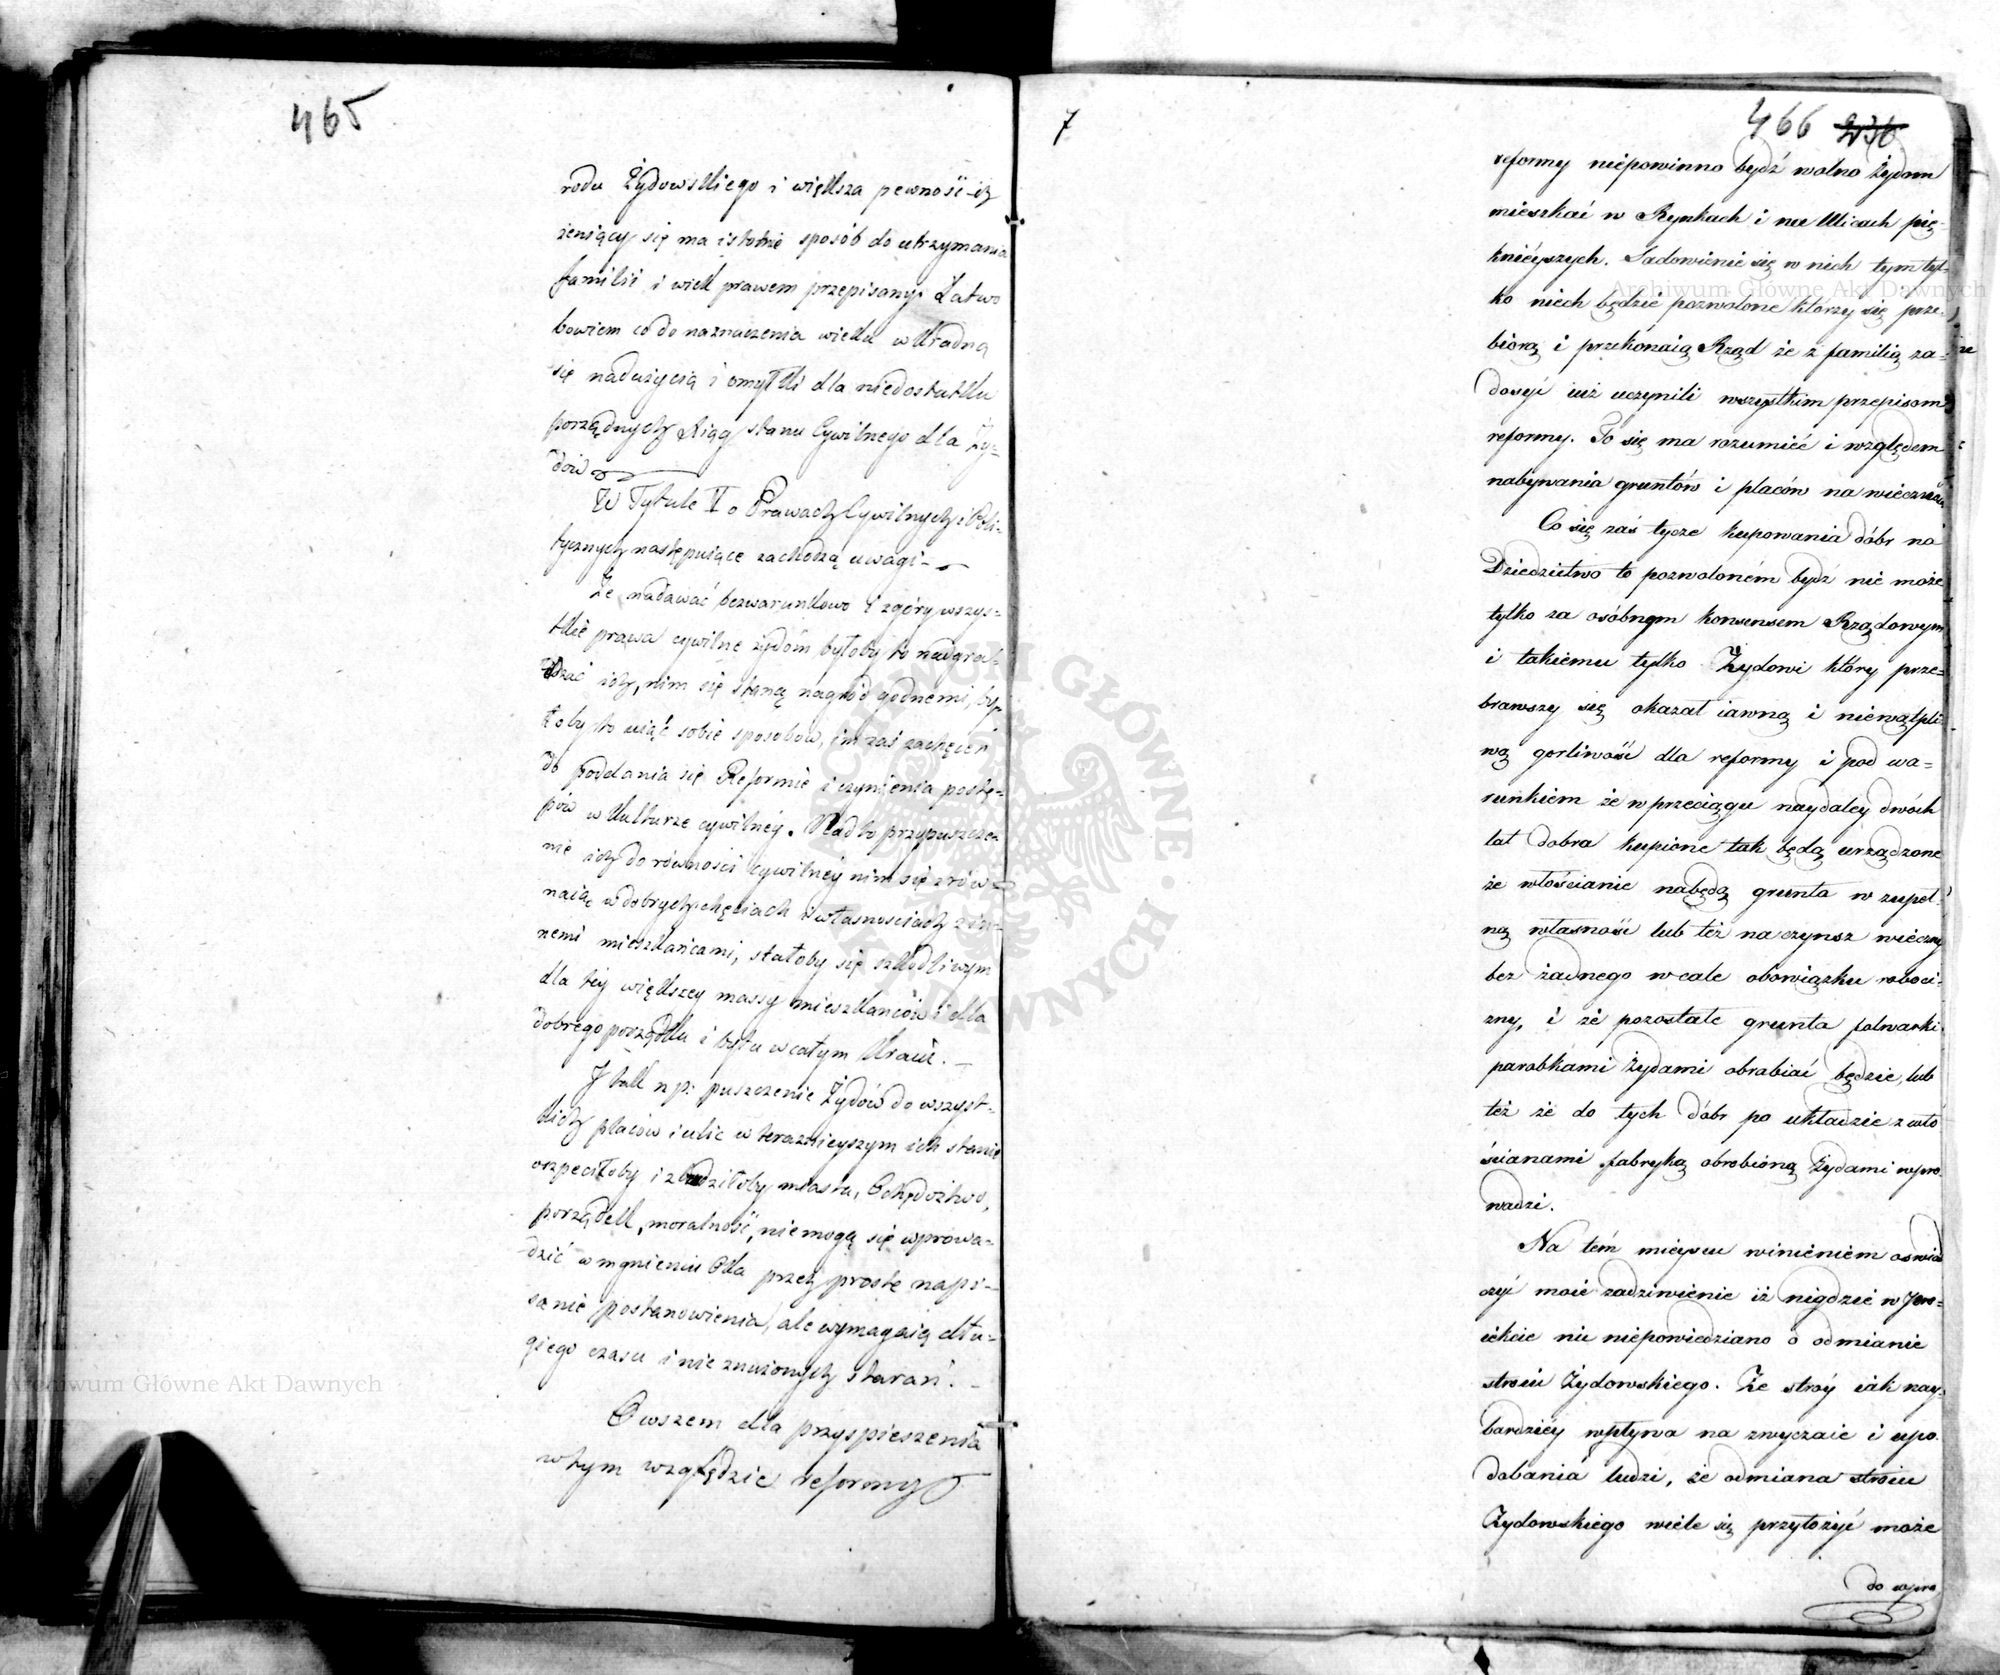 465
rodu Żydowskiego i większa pewność iż
żeniący się ma istotnie sposób do utrzymania
familii i wiek prawem przepisany. Łatwo
bowiem co do naznaczenia wieku wkradną
się nadużycia i omyłki dla niedostatku
porządnych Xiąg stanu Cywilnego dla Ży-
dów
W Tytule II o Prawach Cywilnych i Poli-
tycznych następuiące zachodzą uwagi.
Że nadawać bezwarunkowo i z góry wszys-
tkie prawa cywilne żydom byłoby to nadgra-
dzać ich, nim się staną nagród godnemi, by-
łoby to uiąć sobie sposobów, im zaś zachęceń
do poddania się Reformie i czynienia postę-
pów w kulturze cywilnéy. Nadto przypuszcze-
nie ich do równości cywilnéy nim się zrów-
naią w dobrych chęciach i własnościach z in-
nemi mieszkańcami, stałoby się szkodliwym
dla téy większey massy mieszkańców i dla
dobrego porządku i bytu w całym Kraiu. —
I tak np: puszczenie Żydów do wszyst-
kich placów i ulic w teraznieyszym ich stanie
oszpeciłoby i zbrudziłoby miasta. Ochędóztwo,
porządek, moralność, niemogą się wprowa-
dzić w mgnieniu Oka przez proste napi-
sanie postanowienia, ale wymagaią dłu-
giego czasu i nieznużonych starań. —
Owszem dla przyspieszenia
w tym względzie reformy
7
466
reformy niepowinno bydź wolno Żydom
mieszkać w Rynkach i na Ulicach pię-
knieyszych. Sadowienie się w nich tym tyl-
ko niech będzie pozwolone którzy się prze-
biorą i przekonaią Rząd że z familią za-
dosyć iuż uczynili wszystkim przepisom
reformy. To się ma rozumieć i względem
nabywania gruntów i placów na wieczność
Co się zaś tycze kupowania dóbr na
Dziedzictwo to pozwoloném bydź nie może
tylko za osóbnym konsensem Rządowym
i takiemu tylko Żydowi który prze-
brawszy się okazał iawną i niewątpli-
wą gorliwość dla reformy i pod wa-
runkiem że w przeciągu naydaley dwóch
lat dobra kupione tak będą urządzone
że włościanie nabędą grunta w zupeł-
ną własność lub też na czynsz wieczny
bez żadnego wcale obowiązku roboci-
zny, i że pozostałe grunta folwarki
parobkami Żydami obrabiać będzie, lub
też że do tych dóbr po układzie z wło
ścianami fabrykę obrobioną Żydami wpro
wadzi.
Na tém mieyscu winieniem oświad
czyć moie zadziwienie iż nigdzie w Pro-
iekcie nic niepowiedziano o odmianie
stroiu Żydowskiego. Że stróy iak nay-
bardziéy wpływa na zwyczaie i upo-
dobania ludzi, że odmiana stroiu
Żydowskiego wiele się przyłożyć może
do wpro
Archiwum Główne Akt Dawnych
Archiwum Główne Akt Dawnych
ARCHIWUM GŁÓWNE AKT DAWNYCH